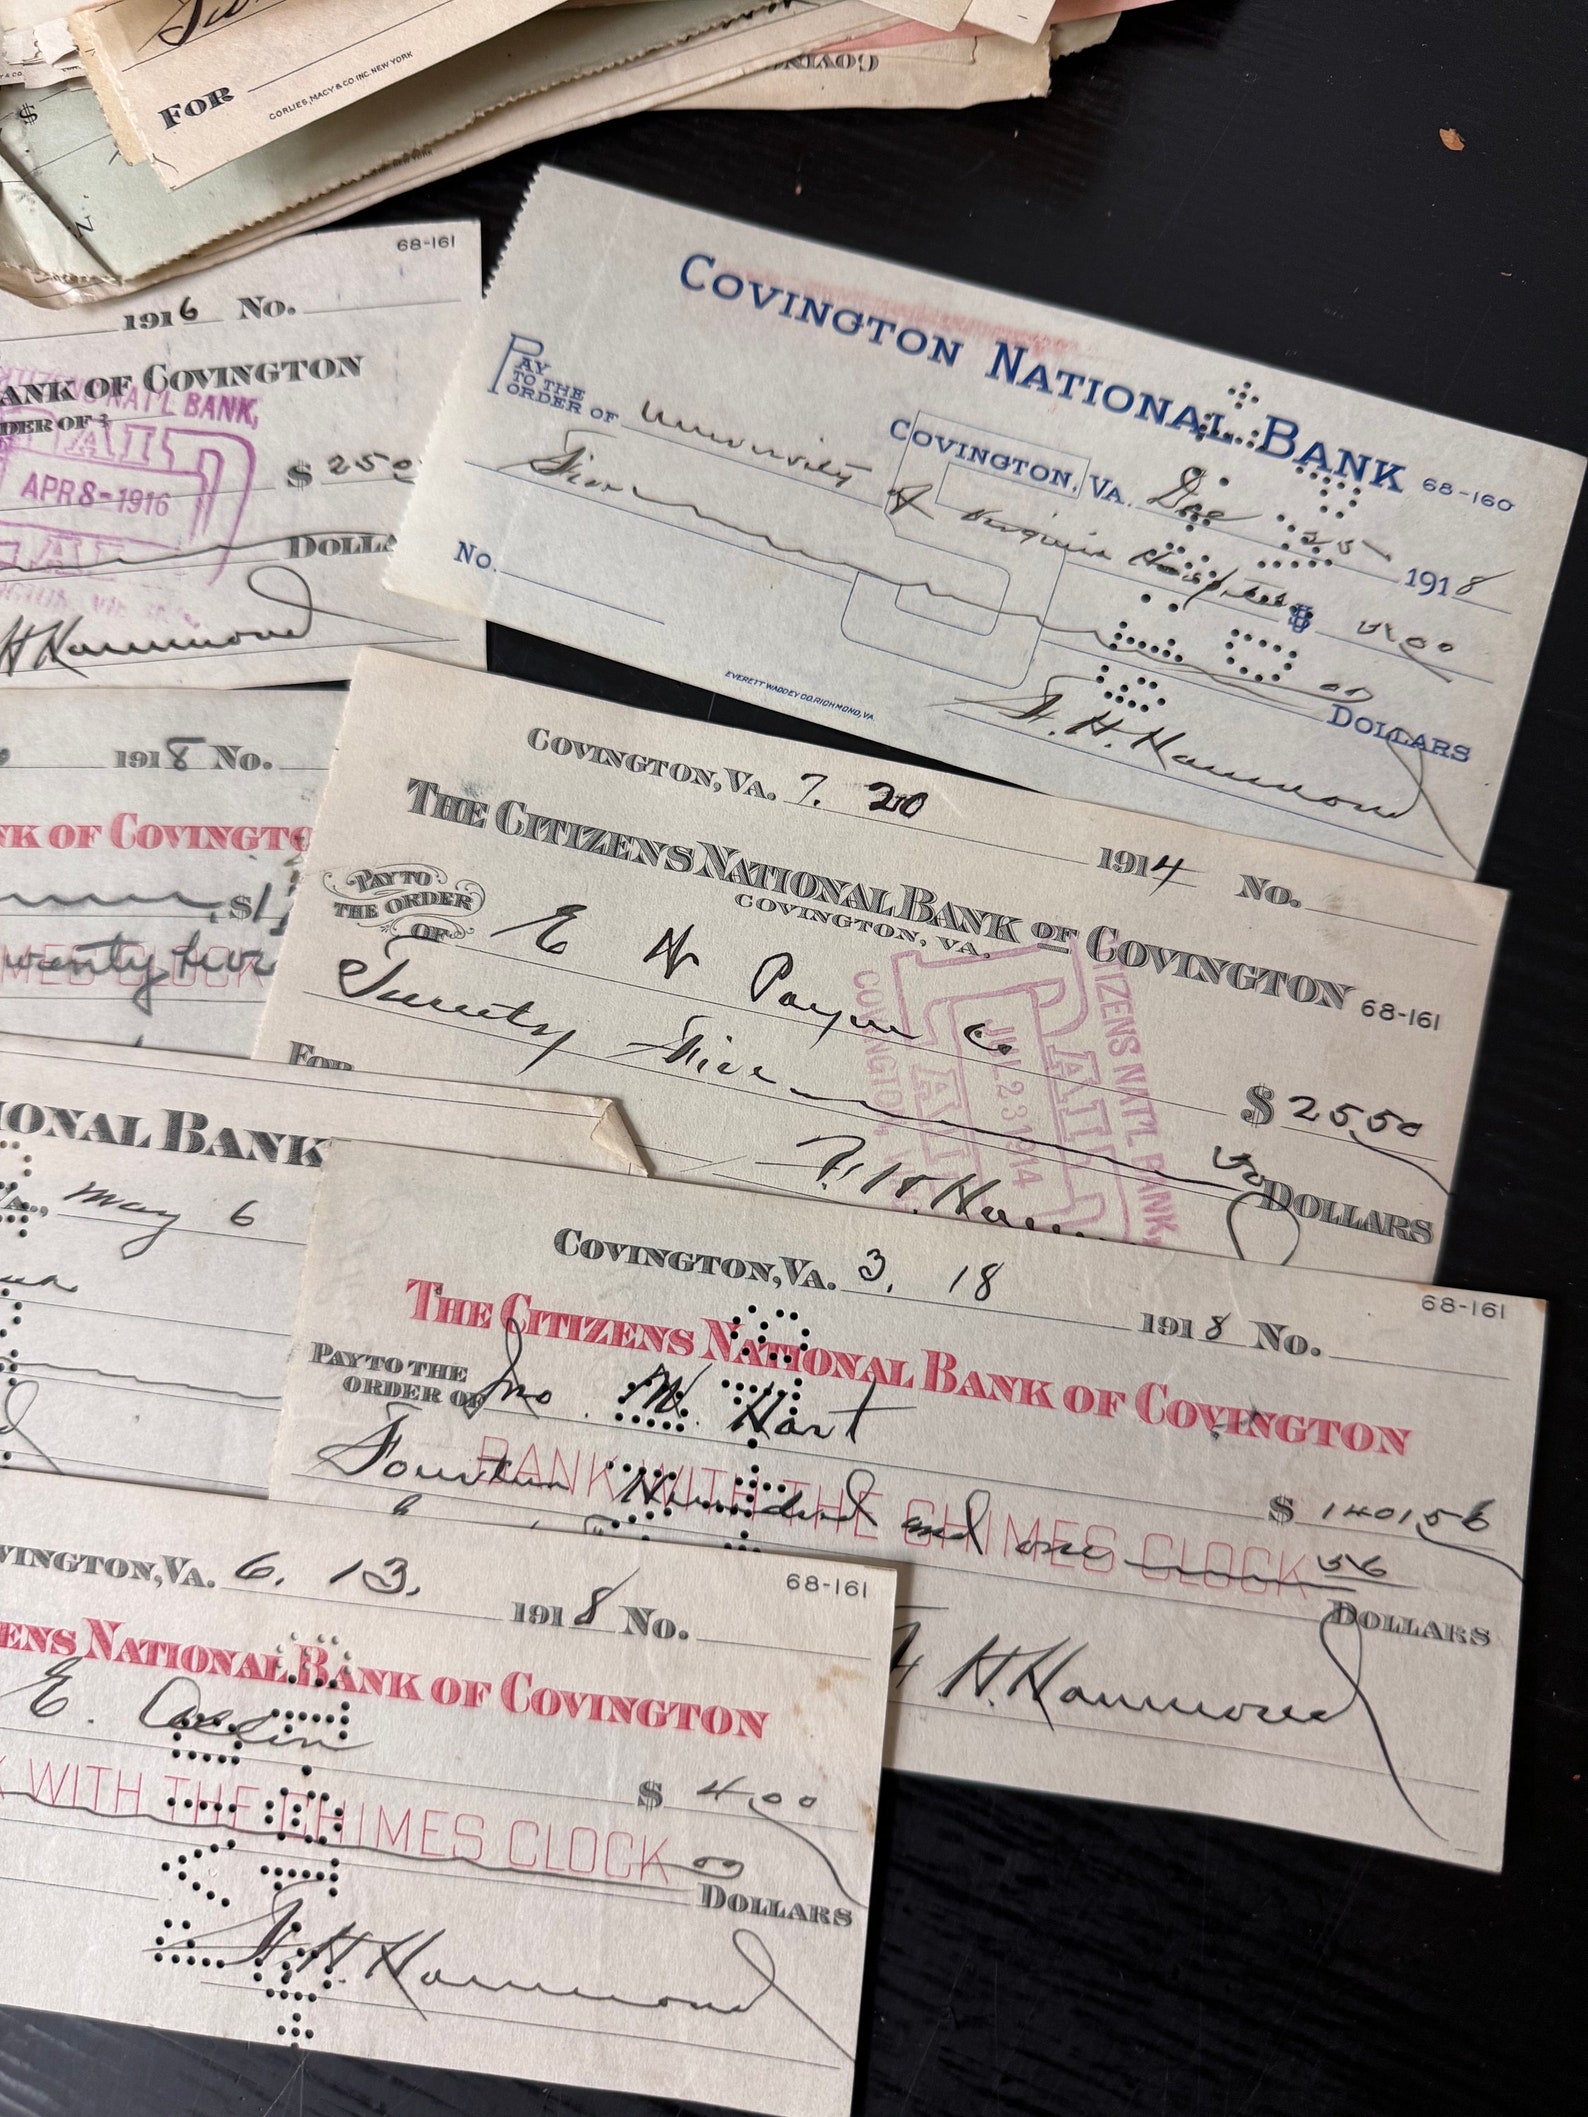 FOR
CORLIES, MACY & CO. INC. NEW YORK
$
68-161
1916 No.
ANK OF COVINGTON
CITIZENS NAT'L BANK,
DER OF
PAID
APR 8-1916
$ 250
DOLLA
H Hammond
COVINGTON NATIONAL BANK 68-160
PAY
TO THE
ORDER OF University of Virginia Hospital $ 5.00
COVINGTON, VA. Dec 25 1918
Five 00 DOLLARS
No.
EVERETT WADDEY CO. RICHMOND, VA.
F. H. Hammond
1918 No.
NK OF COVINGTO
$1
wenty two
MES CLOCK
FOR
COVINGTON, VA. 7. 20 1914 No.
THE CITIZENS NATIONAL BANK OF COVINGTON 68-161
COVINGTON, VA.
PAY TO
THE ORDER
OF E N Payne Co $ 25.50
Twenty Five 50 DOLLARS
CITIZENS NAT'L BANK,
PAID
JUL 23 1914
COVINGTON,
F. H. Ham
IONAL BANK
VA., May 6
68-161
COVINGTON, VA. 3. 18 1918 No.
THE CITIZENS NATIONAL BANK OF COVINGTON
PAY TO THE
ORDER OF Jno. M. Hart $ 1401 56
BANK WITH THE CHIMES CLOCK
Fourteen Hundred and one 56 DOLLARS
F H. Hammond
68-161
VINGTON, VA. 6. 13. 1918 No.
ENS NATIONAL BANK OF COVINGTON
E. $ 4.00
K WITH THE CHIMES CLOCK
00 DOLLARS
F. H. Hammond